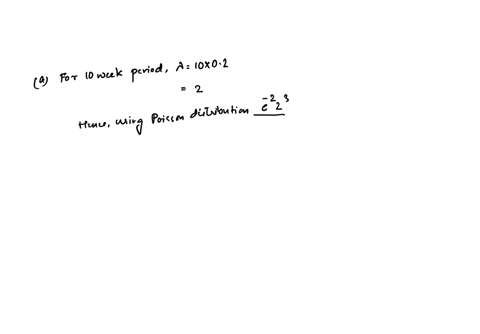 (a) For 10 week period, λ = 10×0.2
= 2
Hence, using Poisson distribution e^-2 2^3